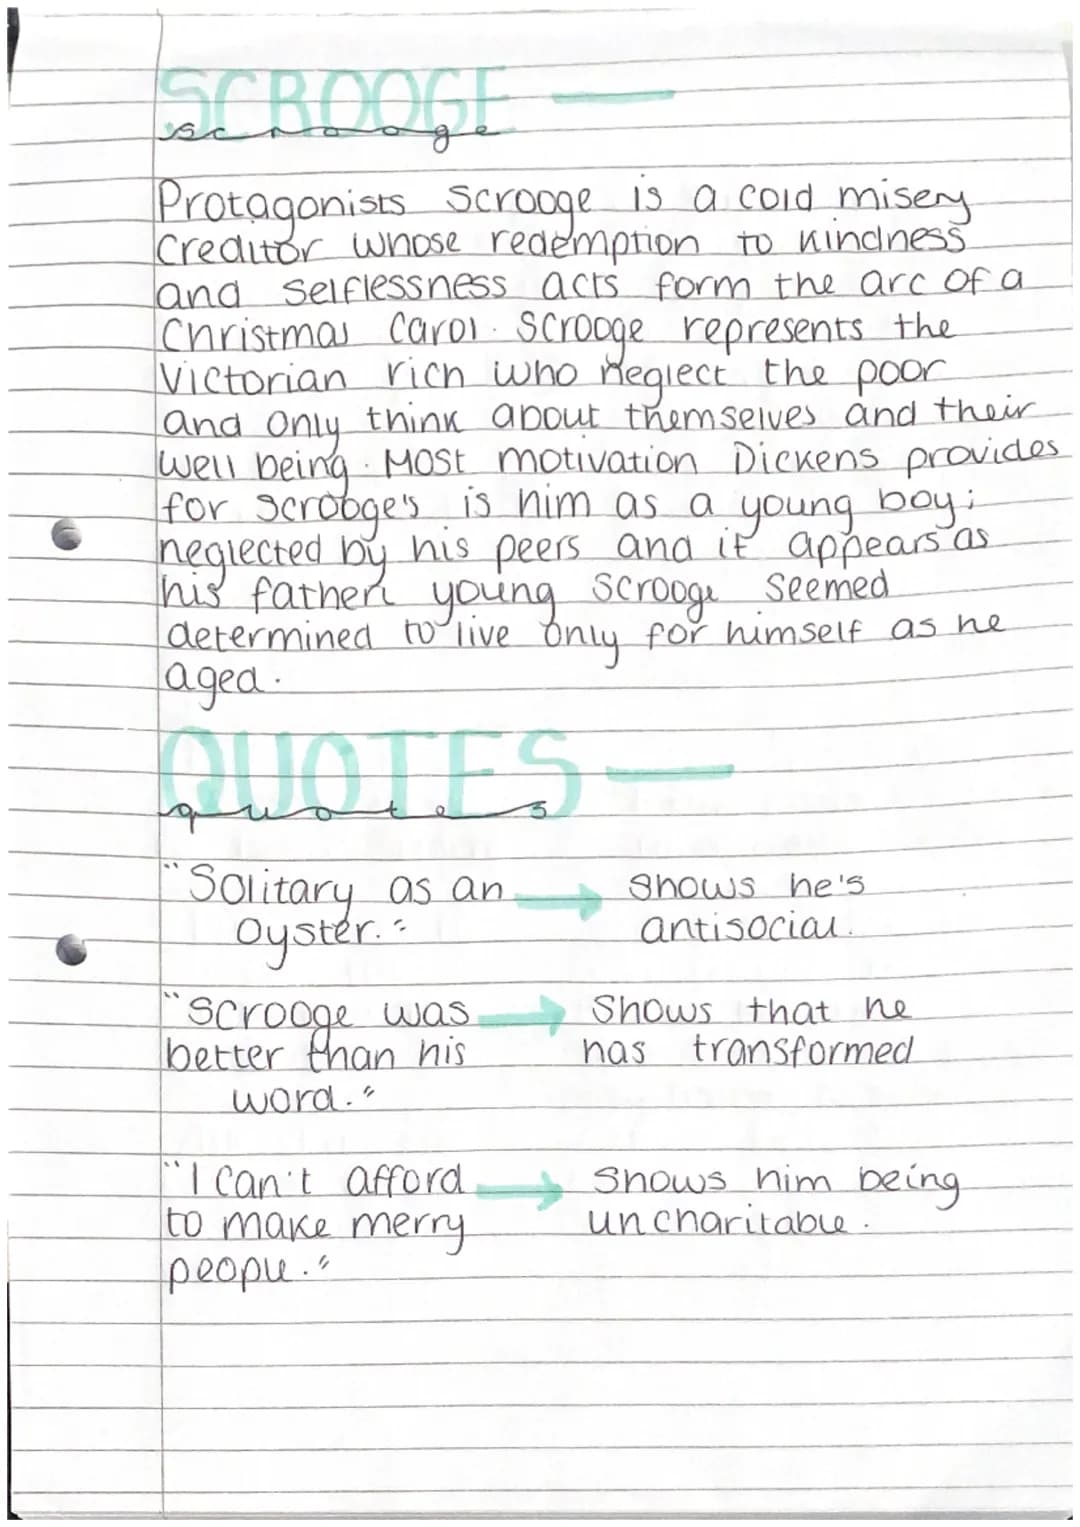 SCROOGE —
scrooge
Protagonists Scrooge is a cold misery
Creditor whose redemption to kindness
and selflessness acts form the arc of a
Christmas Carol. Scrooge represents the
Victorian rich who neglect the poor
and only think about themselves and their
well being. Most motivation Dickens provides
for scrooge's is him as a young boy;
neglected by his peers and it appears as
his father, young Scrooge seemed
determined to live only for himself as he
aged.
QUOTES —
quotes
"Solitary as an → Shows he's
oyster." antisocial.
"Scrooge was → Shows that he
better than his has transformed
word."
"I can't afford → Shows him being
to make merry uncharitable.
people."